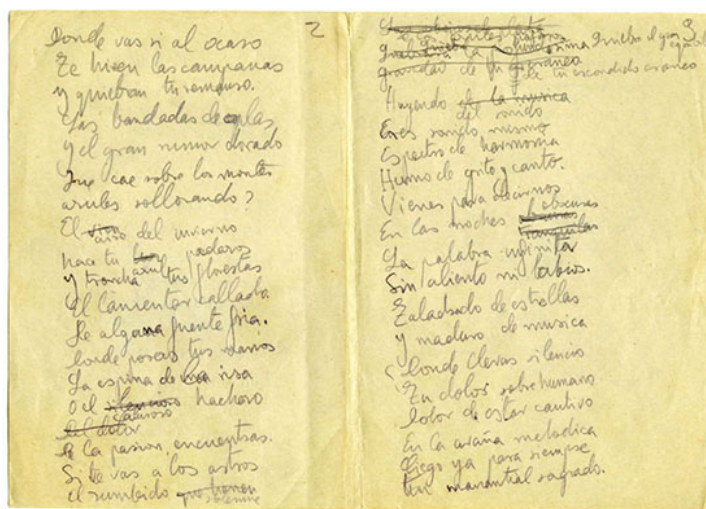 2
Donde vas si al ocaso
Te hieren las campanas
y quiebran tu remanso.
Las bandadas de coplas
y el gran rumor dorado
Que cae sobre los montes
azules sollozando?
El aire del invierno
hace tu azul pedazos
y troncha tus florestas
El lamentar callado
De alguna fuente fria.
Donde posas tus manos
La espina de la risa
O el caluroso hachazo
De la pasion encuentras.
Si te vas a los astros
El zumbido solemne
De los azules pajaros
Quiebra el gran equilibrio
De tu escondido craneo
Huyendo del sonido
Eres sonido mismo
Espectro de harmonia
Humo de grito y canto.
Vienes para decirnos
En las noches obscuras
La palabra infinita
Sin aliento ni labios.
Taladrado de estrellas
y maduro de musica
Donde llevas silencio
Tu dolor sobrehumano
Dolor de estar cautivo
En la araña melodica
Ciego ya para siempre
Tu manantial sagrado.